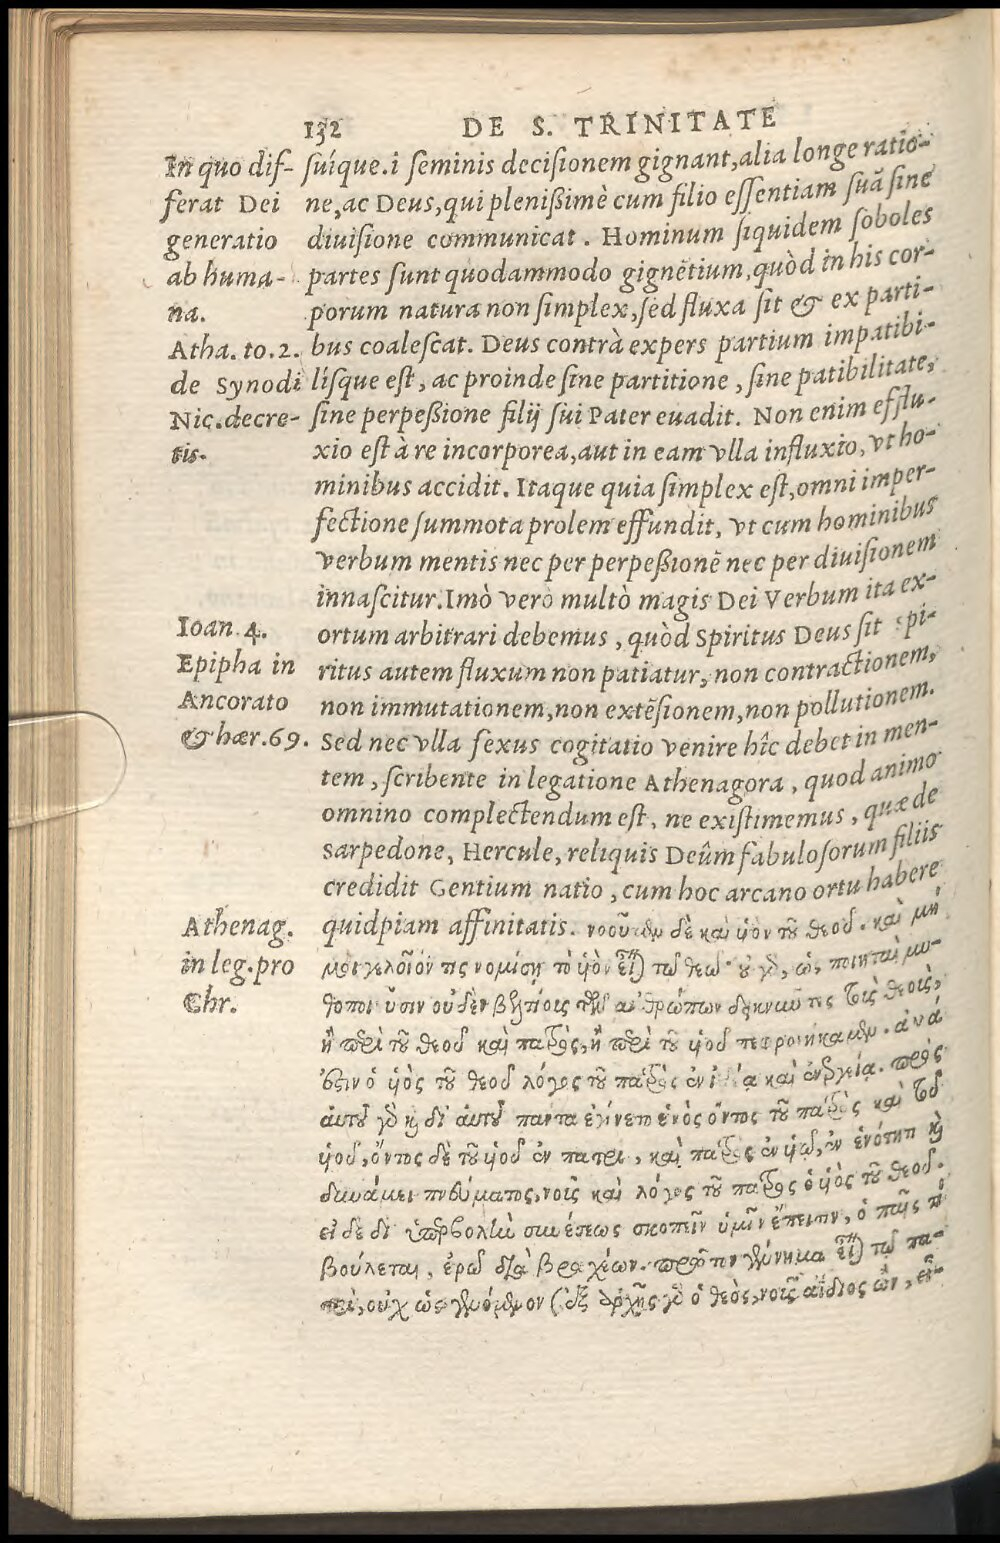 132 DE S. TRINITATE
In quo dif-
ferat Dei
generatio
ab huma-
na.
Atha. to. 2.
de Synodi
Nic. decre-
tis.
Ioan. 4.
Epipha in
Ancorato
& hær. 69.
Athenag.
in leg. pro
Chr.
suíque. i seminis decisionem gignant, alia longe ratio-
ne, ac Deus, qui plenißimè cum filio essentiam suã sine
diuisione communicat. Hominum siquidem soboles
partes sunt quodammodo gignẽtium, quòd in his cor-
porum natura non simplex, sed fluxa sit & ex parti-
bus coalescat. Deus contrà expers partium impatibi-
lísque est, ac proinde sine partitione, sine patibilitate,
sine perpeßione filij sui Pater euadit. Non enim efflu-
xio est à re incorporea, aut in eam vlla influxio, vt ho-
minibus accidit. Itaque quia simplex est, omni imper-
fectione summota prolem effundit, vt cum hominibus
verbum mentis nec per perpeßionẽ nec per diuisionem
innascitur. Imò verò multò magis Dei Verbum ita ex-
ortum arbitrari debemus, quòd Spiritus Deus sit spi-
ritus autem fluxum non patiatur, non contractionem,
non immutationem, non extẽsionem, non pollutionem.
Sed nec vlla sexus cogitatio venire hîc debet in men-
tem, scribente in legatione Athenagora, quod animo
omnino complectendum est, ne existimemus, quæ de
Sarpedone, Hercule, reliquis Deûm fabulosorum filiis
credidit Gentium natio, cum hoc arcano ortu habere
quidpiam affinitatis. νοοῦμεν δὲ καὶ υἱὸν τοῦ θεοῦ. καὶ μή
μοι γελοῖόν τις νομίσῃ τὸ υἱὸν εἶναι τῷ θεῷ. οὐ γὰρ, ὡς ποιηταὶ μυ-
θοποιοῦσιν οὐδὲν βελτίους τῶν ἀνθρώπων δεικνύντες τοὺς θεοὺς,
ἢ περὶ τοῦ θεοῦ καὶ πατρὸς, ἢ περὶ τοῦ υἱοῦ πεφρονήκαμεν. ἀλλά
ἐστιν ὁ υἱὸς τοῦ θεοῦ λόγος τοῦ πατρὸς ἐν ἰδέᾳ καὶ ἐνεργείᾳ. πρὸς
αὐτοῦ γὰρ καὶ δι' αὐτοῦ πάντα ἐγένετο ἑνὸς ὄντος τοῦ πατρὸς καὶ τοῦ
υἱοῦ, ὄντος δὲ τοῦ υἱοῦ ἐν πατρὶ, καὶ πατρὸς ἐν υἱῷ, ἐν ἑνότητι καὶ
δυνάμει πνεύματος, νοῦς καὶ λόγος τοῦ πατρὸς ὁ υἱὸς τοῦ θεοῦ.
εἰ δὲ δι' ὑπερβολὴν συνέσεως σκοπεῖν ὑμῖν ἔπεισιν, ὁ παῖς τί
βούλεται, ἐρῶ διὰ βραχέων. πρῶτον γέννημα εἶναι τῷ πα-
τρὶ, οὐχ ὡς γενόμενον (ἐξ ἀρχῆς γὰρ ὁ θεὸς, νοῦς ἀΐδιος ὢν, εἶ-